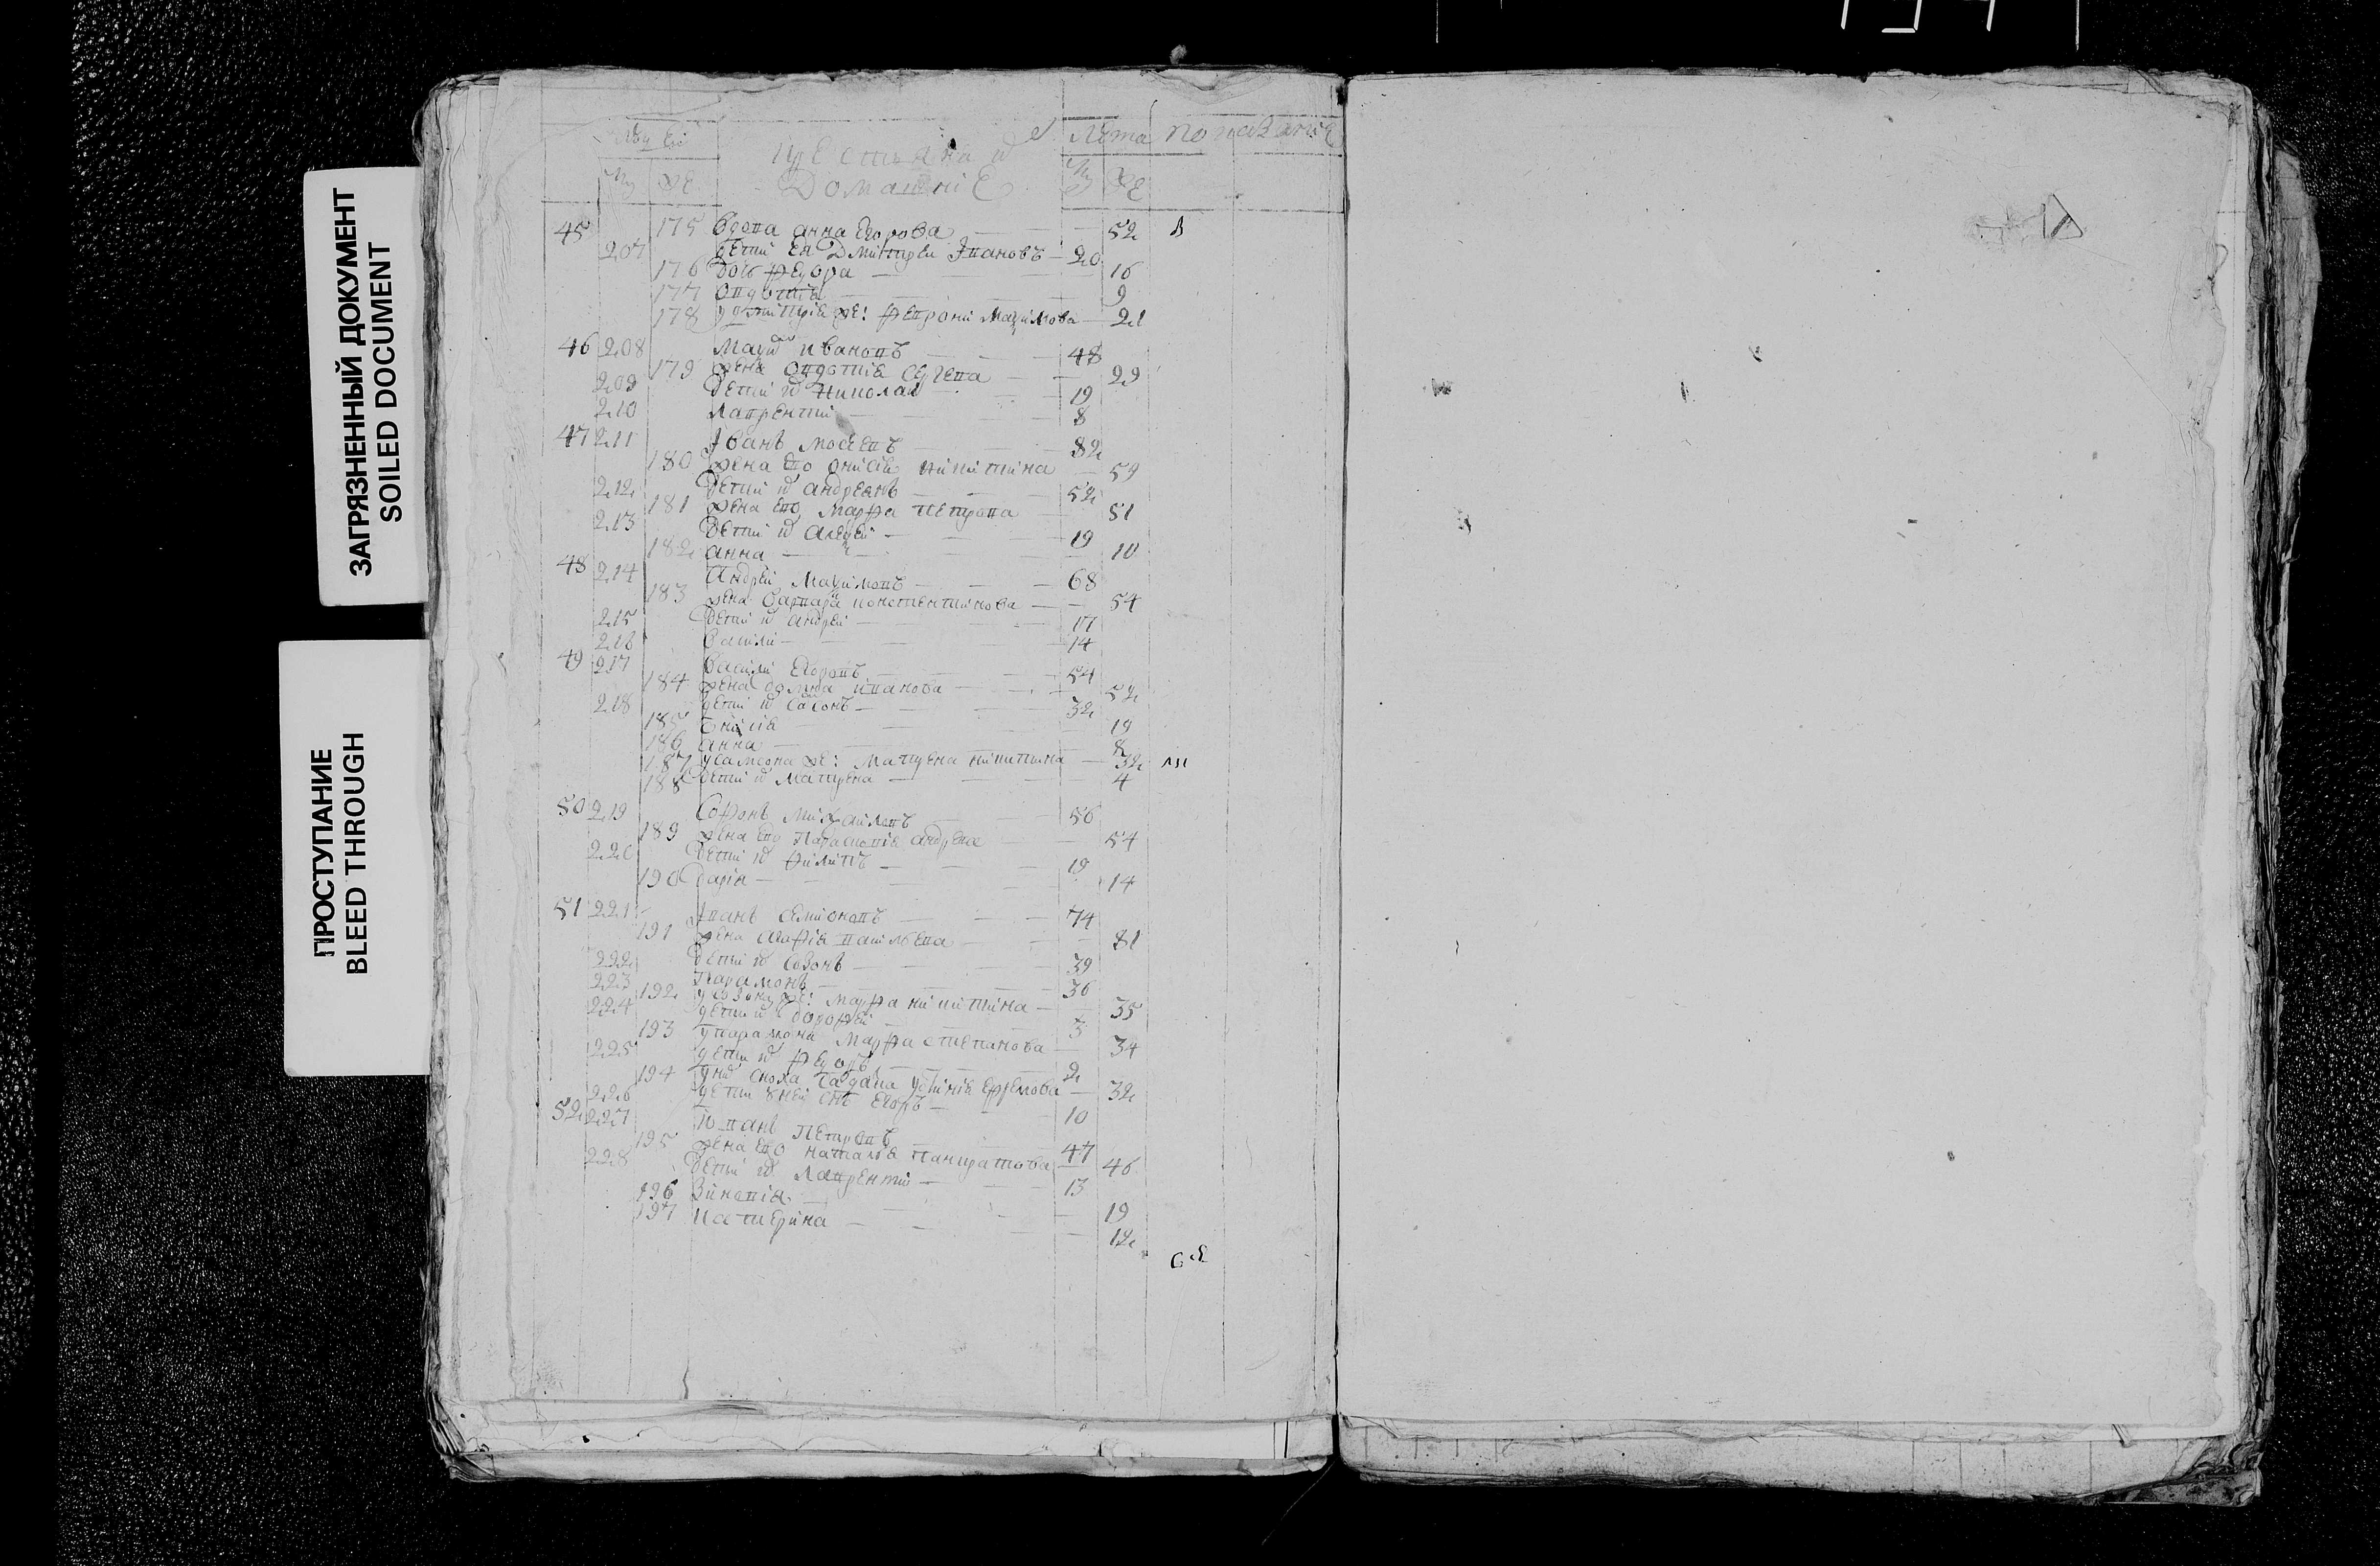 ЗАГРЯЗНЕННЫЙ ДОКУМЕНТ
SOILED DOCUMENT
ПРОСТУПАНИЕ
BLEED THROUGH
Лета показание
Домашніе
45 175 вдова анна Егорова 52
207 дети ея Дмитрей Ивановъ 20
176 16
177 9
178 21
46 208 ивановъ 48
179 жена 29
209 дети их Николай 19
210 лаврентий 8
47 211 Иванъ мосеевъ 82
180 жена его никитина 59
212 дети их андреянъ 52
181 жена его Марфа петрова 51
213 дети их 19
182 анна 10
48 214 Андрей Максимовъ 68
183 жена варвара констентинова 54
215 дети их андрей 17
216 васили 14
49 217 Васили Егоровъ 54
184 жена домна иванова 52
218 дети их 32
185 19
186 анна 8
187 у самсона же: матрена никитина 32
188 дети их матрена 4
50 219 Софонъ михаиловъ 56
189 жена его Парасковіе андреева 54
220 дети их филипъ 19
190 дарія 14
51 221 Іванъ семионовъ 74
191 жена агафіа васильева 81
222 дети их созонъ 39
223 Парамонъ 36
192 у созона же: марфа никитина 35
224 дети их дорофей 3
193 у парамона марфа степанова 34
225 дети их федоръ 2
194 у них сноха Ефремова 32
226 дети у ней снъ Егоръ 10
52 227 петровъ 47
195 жена его наталіа панкратова 46
228 дети их лаврентий 13
196 Зиновіа 19
197 катерина 12